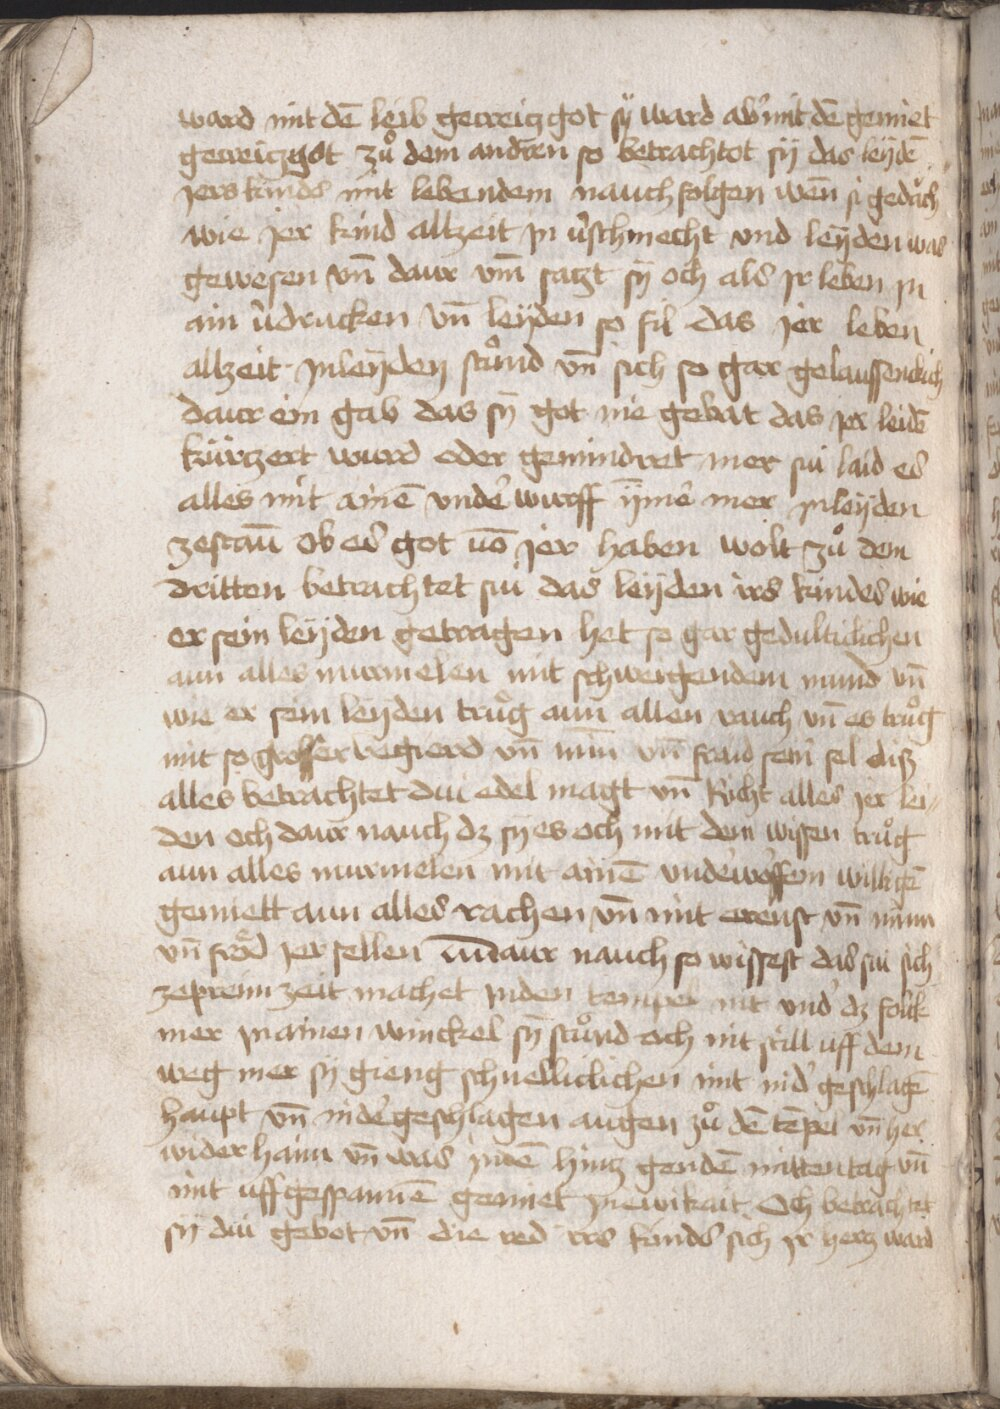 ward mit dē leib gecreiczgot sÿ ward abʼ mit dē gemiet
gecreiczgot zů dem andren so betrachtot sÿ das leÿdē
jers kinds mit lebendem nauchfolgen wen̄ si gedǎch
wie jer kind allzeit jn ûschmecht vnd leÿden was
gewesen vn̄ daur vm̄ saczt sÿ och als jr leben jn
ain ûdrucken vn̄ leÿden so fil das jer leben
allzeit jnleÿden stůnd vn̄ sich so gar gelaussenclich
daur ein gab das sÿ got nie gebat das jer leidē
kürczert wurd oder gemindret mer sui laid es
alles mit ainē vndeʼ wurff ÿmeʼ mer jnleÿden
zestan̄ ob es got uō jer haben wolt zů dem
dritten betrachtet sui das leÿden irs kindes wie
er sein leÿden getragen het so gar gedulticlichen
aun alles murmelen mit schweigendem mund vn̄
wie er sein leÿden trůg aun allen rauch vn̄ es trůg
mit so grosser begierd vn̄ min̄ vn̄ fraid seinʼ sel diß
alles betrachtet dui edel magt vn̄ Richt alles jer lei⸗
den och daur nauch dz sÿ es och mit dem wissen trůg
aun alles murmelen mit ainē vndeʼworffem willigē
gemiett aun alles rachen vn̄ mit erenst vn̄ minn
vn̄ frǒd jer sellen Vnd daur nauch so wissest das sui sich
ze preim zeit machet jnden tempel nit vndʼ dz folck
mer jnainen winckel sÿ stůnd och nit still uff dem
weg mer sÿ gieng schnelliclichen mit nidʼ geschlagē
haupt vn̄ nideʼgeschlagen augen zů dē tēpel vn̄ her
wider haim vn̄ was jnnē hincz gendē mittentag vn̄
mit uffgespannē gemiet jn ewikait Och betrachtet
sÿ dui gebot vn̄ die red irs kinds sich jr hercz ward